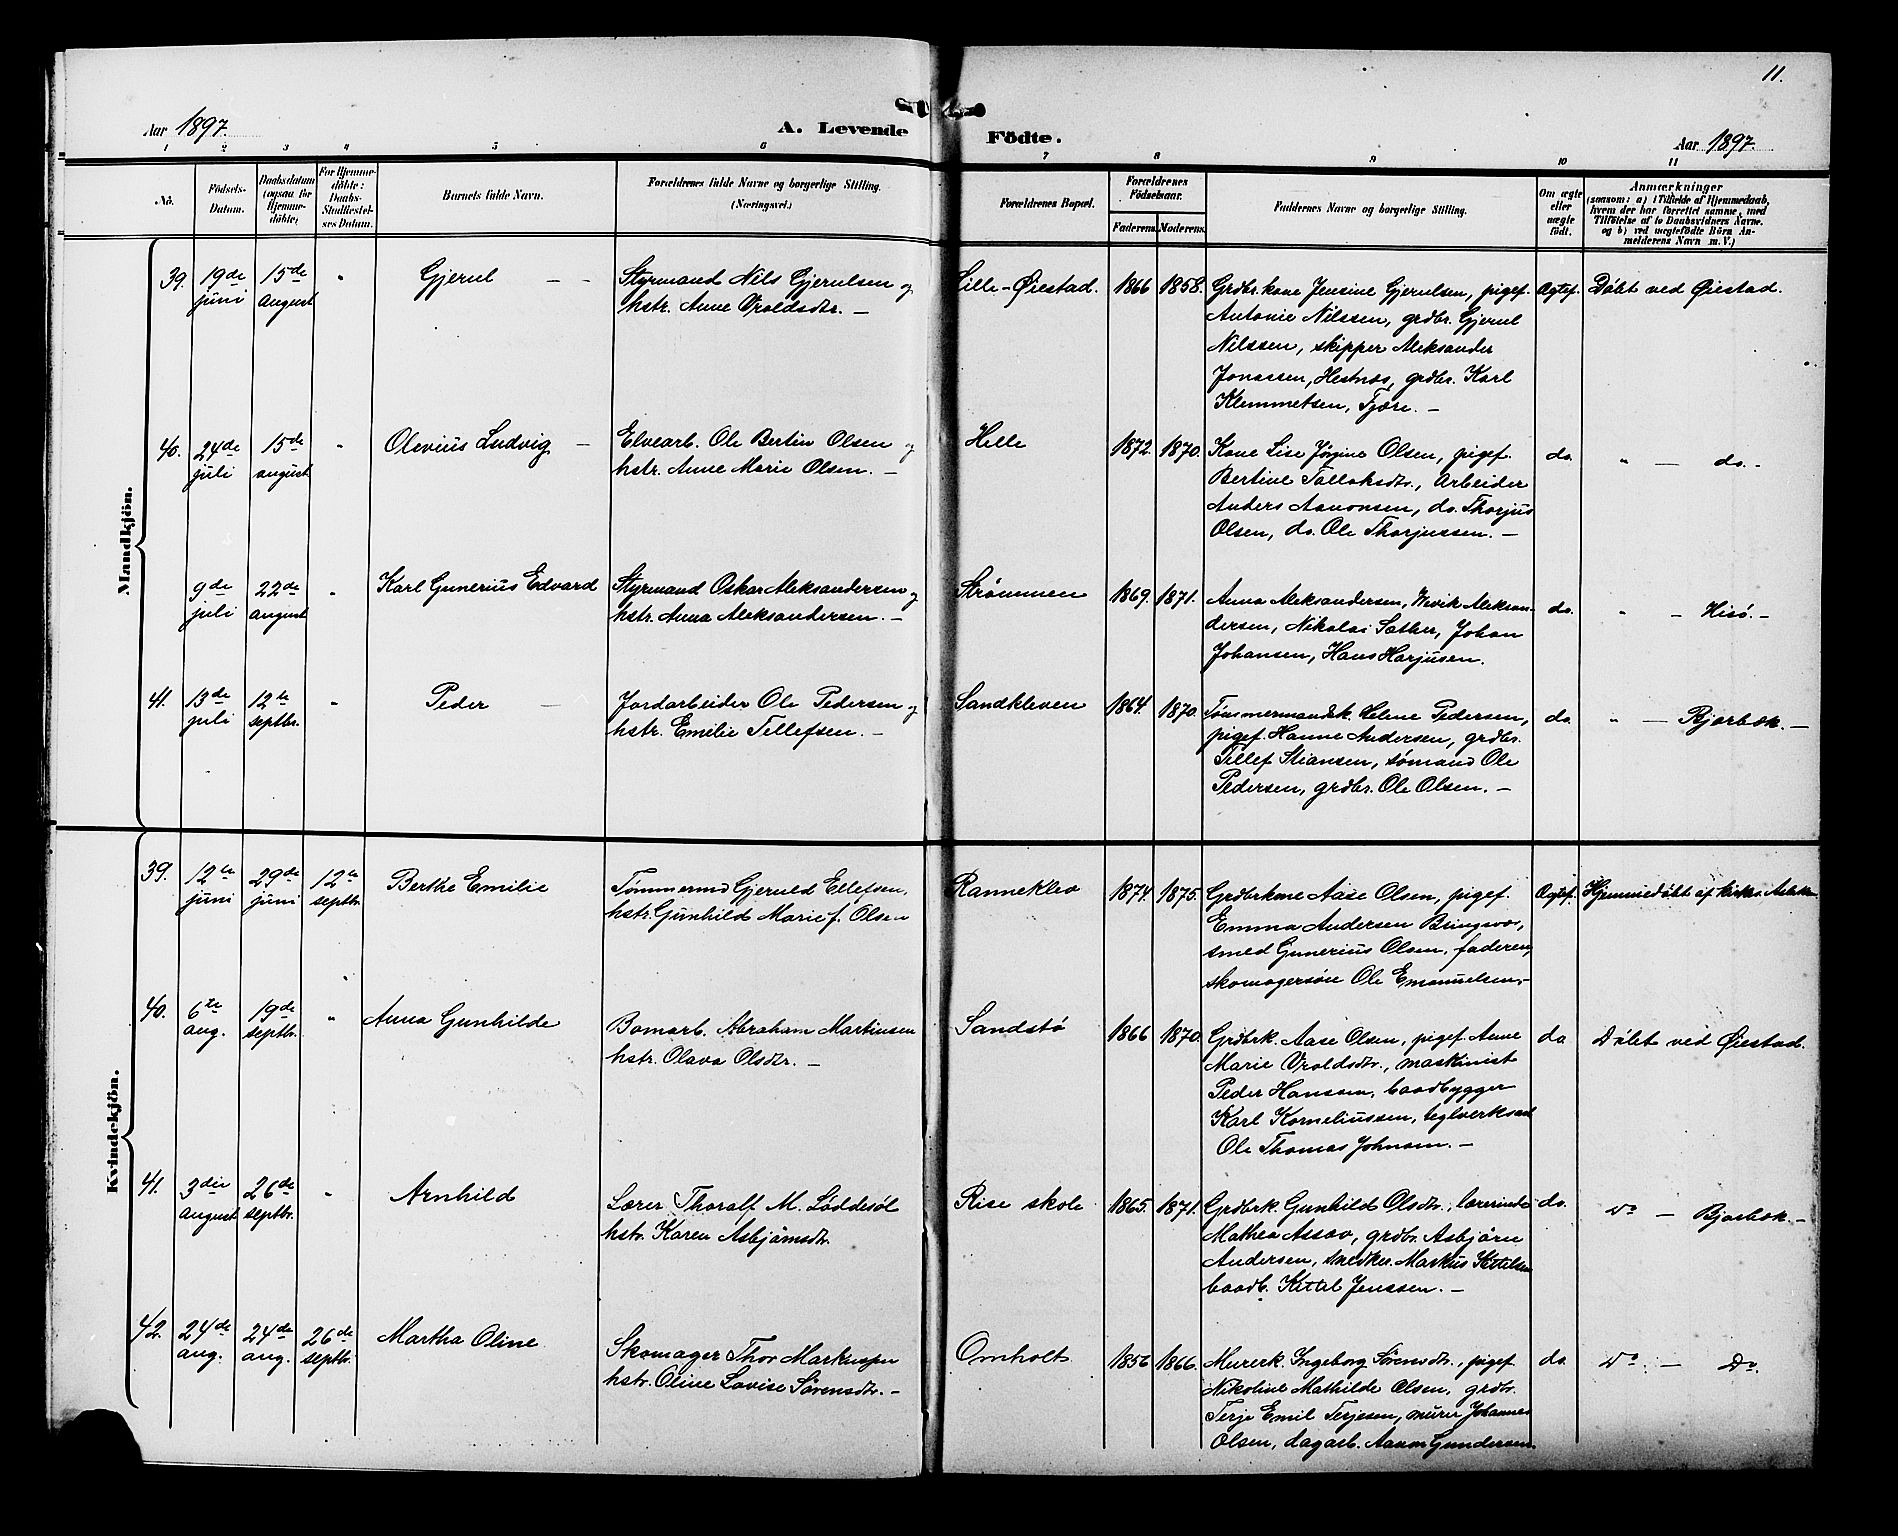 11.
Aar 1897.
A. Levende
Födte.
Aar 1897.
1 2 3 4 5 6 7 8 9 10 11
No.
Födsels-
Datum.
Daabsdatum
(ogsaa for
Hjemme-
döbte)
For Hjemme-
döbte:
Daabs-
Stadfæstel-
ses Datum.
Barnets fulde Navn.
Forældrenes fulde Navne og borgerlige Stilling.
(Næringsvei.)
Forældrenes Bopæl.
Forældrenes
Födselsaar.
Faderens. Moderens.
Faddernes Navne og borgerlige Stilling.
Om ægte
eller
uægte
födt.
Anmærkninger
(saasom: a) i Tilfælde af Hjemmedaab,
hvem der har forrettet samme, med
Tilföielse af to Daabsvidners Navne.
og b) ved uægtefödte Börn An-
melderens Navn m. V.)
Mandkjön.
39. 19de juni 15de august " Gjerul – –
Styrmand Nils Gjerulsen og
hstr. Anne Vroldsdtr. –
Lille-Øiestad. 1866 1858.
Grdbr.kone Jensine Gjerulsen, pigef.
Antonie Nilssen, grdbr. Gjerul
Nilssen, skipper Aleksander
Jonassen, Hestnæs, grdbr. Karl
Klemmetsen, Tjære. –
Ægtef. Døbt ved Øiestad.
40. 24de juli 15de august " Olevius Ludvig –
Elvearb. Ole Bertin Olsen og
hstr. Anne Marie Olsen. –
Helle 1872. 1870.
Kone Lise Jørgine Olsen, pigef.
Bertine Tallaksdtr., Arbeider
Anders Aanonsen, do. Thorjus
Olsen, do. Ole Thorjussen. –
do. " – do. –
9de juli 22de august " Karl Gunerius Edvard
Styrmand Oskar Aleksandersen og
hstr. Anna Aleksandersen. –
Strømmen 1869. 1871.
Anna Aleksandersen, Aleksan-
dersen, Nikolai Sæther, Johan
Johansen, Hans Harjusen.
do. " – Hisø. –
41. 13de juli 12te septbr. " Peder –
Jordarbeider Ole Pedersen og
hstr. Emilie Tellefsen. –
Sandkleven 1864. 1870.
Tømmermandsk. Helene Pedersen,
pigef. Hanne Andersen, grdbr.
Tellef Stiansen, sømand Ole
Pedersen, grdbr. Ole Olsen. –
do. " – Bjorbæk. –
Kvindekjön.
39. 12te juni 29de juni 12te septbr. Berthe Emilie
Tømmermd Gjeruld Ellefsen,
hstr. Gunhild Marie f. Olsen
Ranneklev 1874. 1875.
Grdbrkone Aase Olsen, pigef.
Emma Andersen Bringsvær,
smed Gunerius Olsen, faderen,
skomagersøn Ole Emanuelsen, –
Ægtef. Hjemmedøbt af
40. 6te aug. 19de septbr. " Anna Gunhilde
Bomarb. Abraham Martinsen
hstr. Olava Olsdtr. –
Sandstø 1866 1870.
Grdbrk. Aase Olsen, pigef. Anne
Marie Vroldsdtr., maskinist
Peder Hansen, baadbygger
Karl Korneliussen,
Ole Thomas Johnsen. –
do Døbt ved Øiestad.
41. 3die august 26de septbr. " Arnhild
Lærer Thoralf M. Løddesøl
hstr. Karen Asbjørnsdtr.
Rise skole 1865. 1871.
Grdbrk. Gunhild Olsdtr., lærerinde
Mathea Assev, grdbr. Asbjørn
Andersen, snedker. Markus Kittelsen
baadb. Kittel Jenssen. –
do. Do – Bjorbæk. –
42. 24de aug. 24de aug. 26de septbr. Martha Oline
Skomager Thor Markussen
hstr. Oline Lovise Sørensdtr. –
Omholt 1856 1866.
Murerk. Ingeborg Sørensdtr., pigef
Nikoline Mathilde Olsen, grdbr.
Terje Emil Terjesen, murer Johannes
Olsen, dagarb. Aanon Gundersen.
do. Do. – Do.